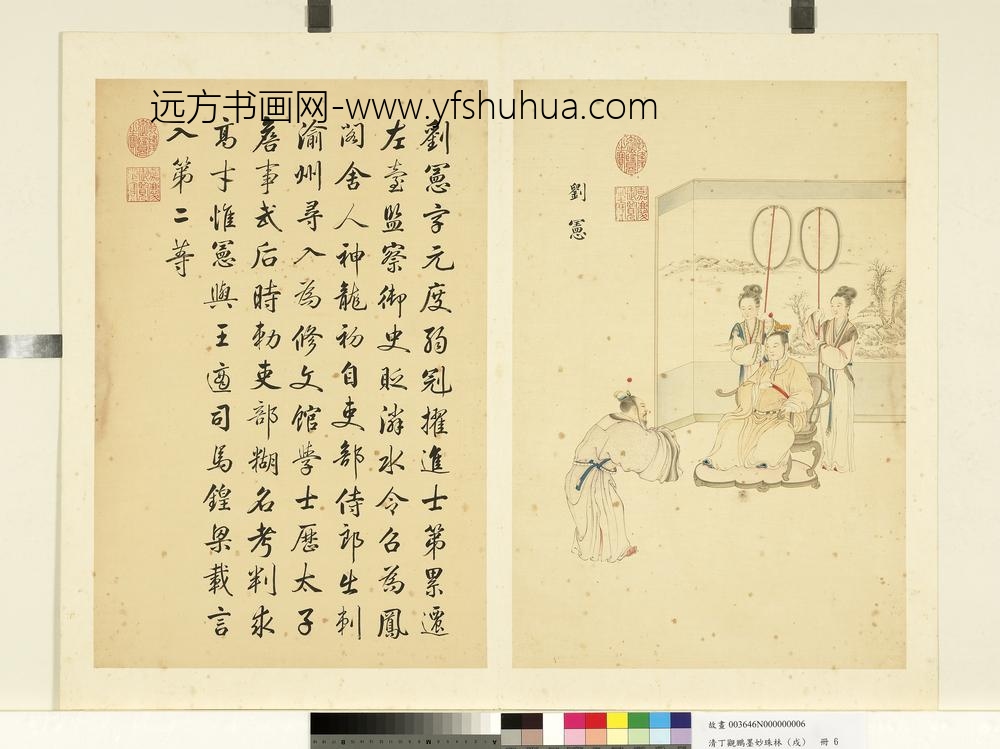 远方书画网-www.yfshuhua.com
劉憲
劉憲字元度弱冠擢進士第累遷
左臺監察御史貶潾水令召為鳳
閣舍人神龍初自吏部侍郎出刺
渝州尋入為修文館學士歷太子
詹事武后時勅吏部糊名考判求
高才惟憲與王適司馬鍠梁載言
入第二等
故畫 003646N000000006
清丁觀鵬墨妙珠林（戌） 冊 6